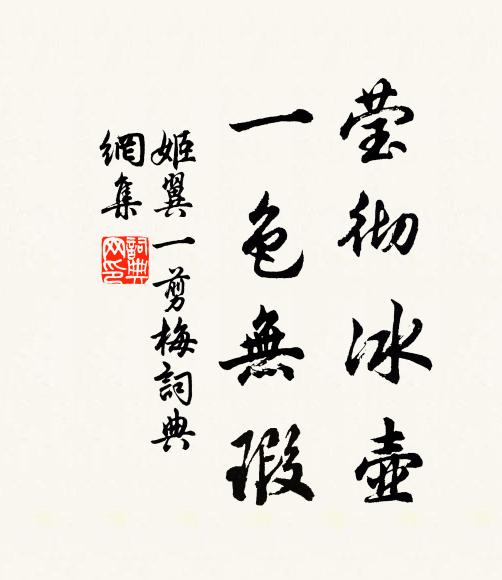 莹彻冰壺
一色無瑕
姬翼一剪梅詞典
網集
詞典
网印